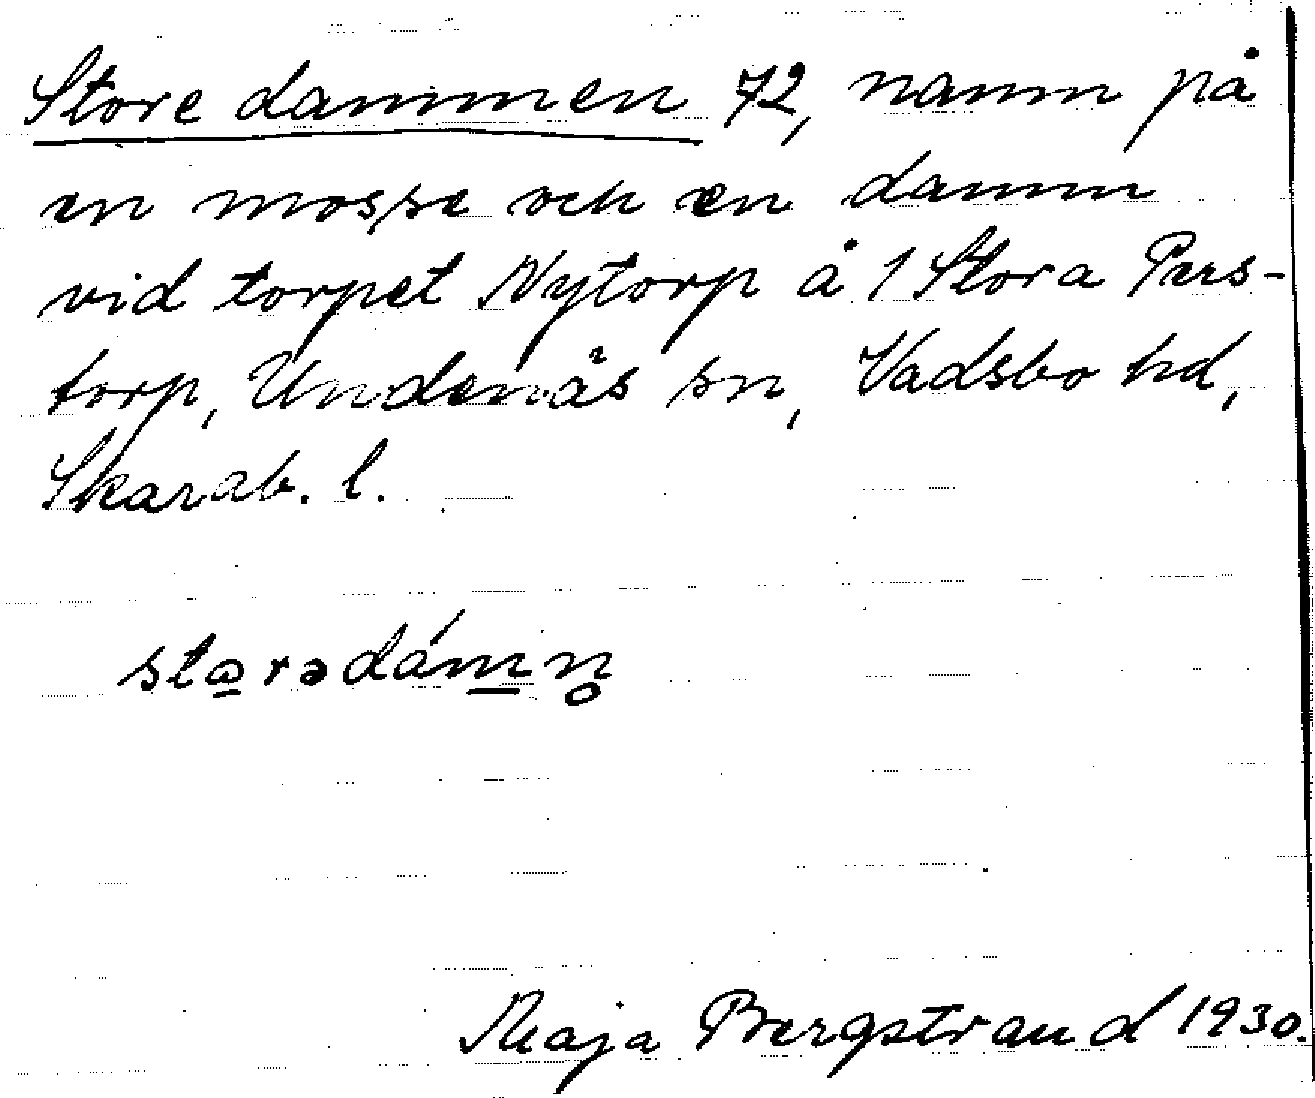 Store dammen 72, namn på
en mosse och en damm
vid torpet Nytorp å 1 Stora Pers-
torp, Undenäs sn, Vadsbo hd,
Skarab. l.
storədámn̥
Maja Bergstrand 1930.